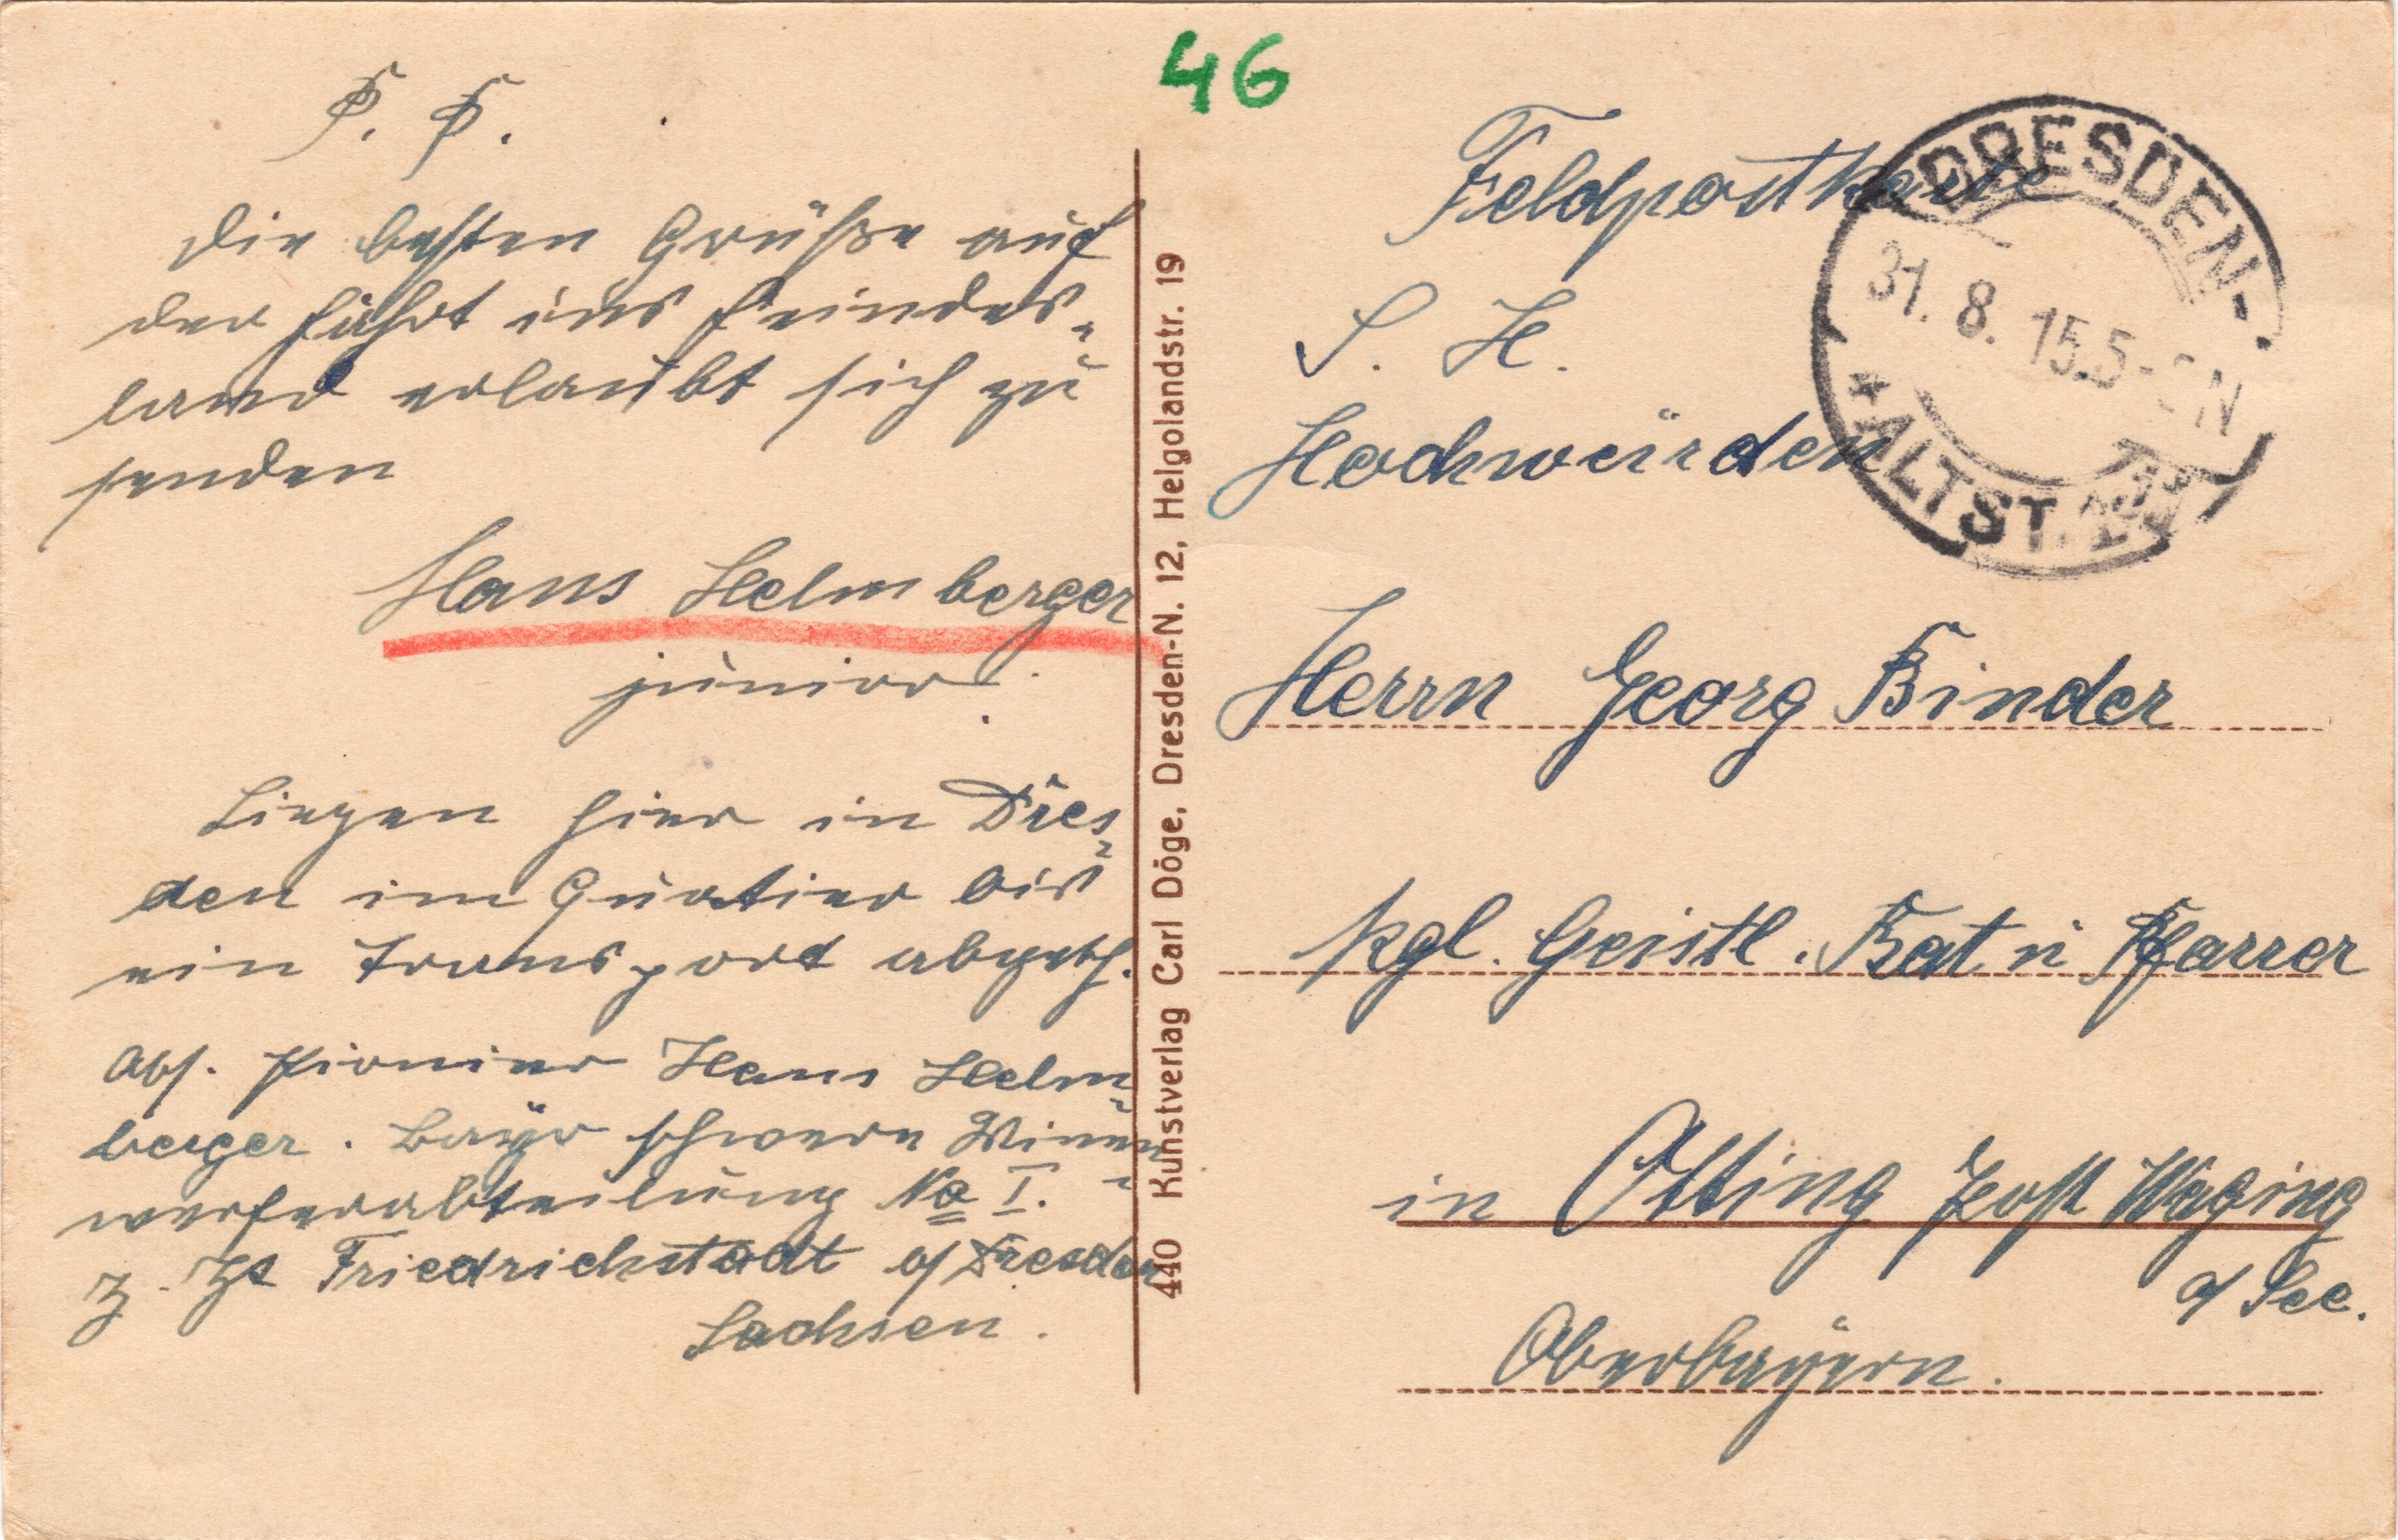 46
P. P.
Die besten Grüße auf
der Fahrt ins Feindes-
land erlaubt sich zu
senden
Hans Helmberger
junior.
Liegen hier in Dres-
den im Quartier bis
ein Transport abgeth.
Abs. Pionier Hans Helm-
berger. Bayr schwere Minen-
werferabteilung No I.
z. Zt Friedrichstadt a/Dresden
Sachsen.
440 Kunstverlag Carl Döge, Dresden-N. 12, Helgolandstr. 19
Feldpostkarte
DRESDEN-
31. 8. 15. 5- N
* ALTST.
S. H.
Hochwürden
Herrn Georg Binder
kgl. Geistl. Rat u Pfarrer
in Otting Post Waging
a/ See.
Oberbayern.